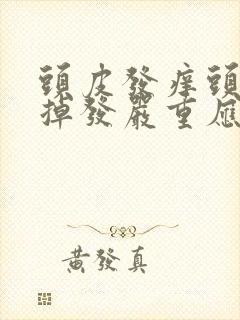 頭皮發痒頭
掉發嚴重應
黃發真